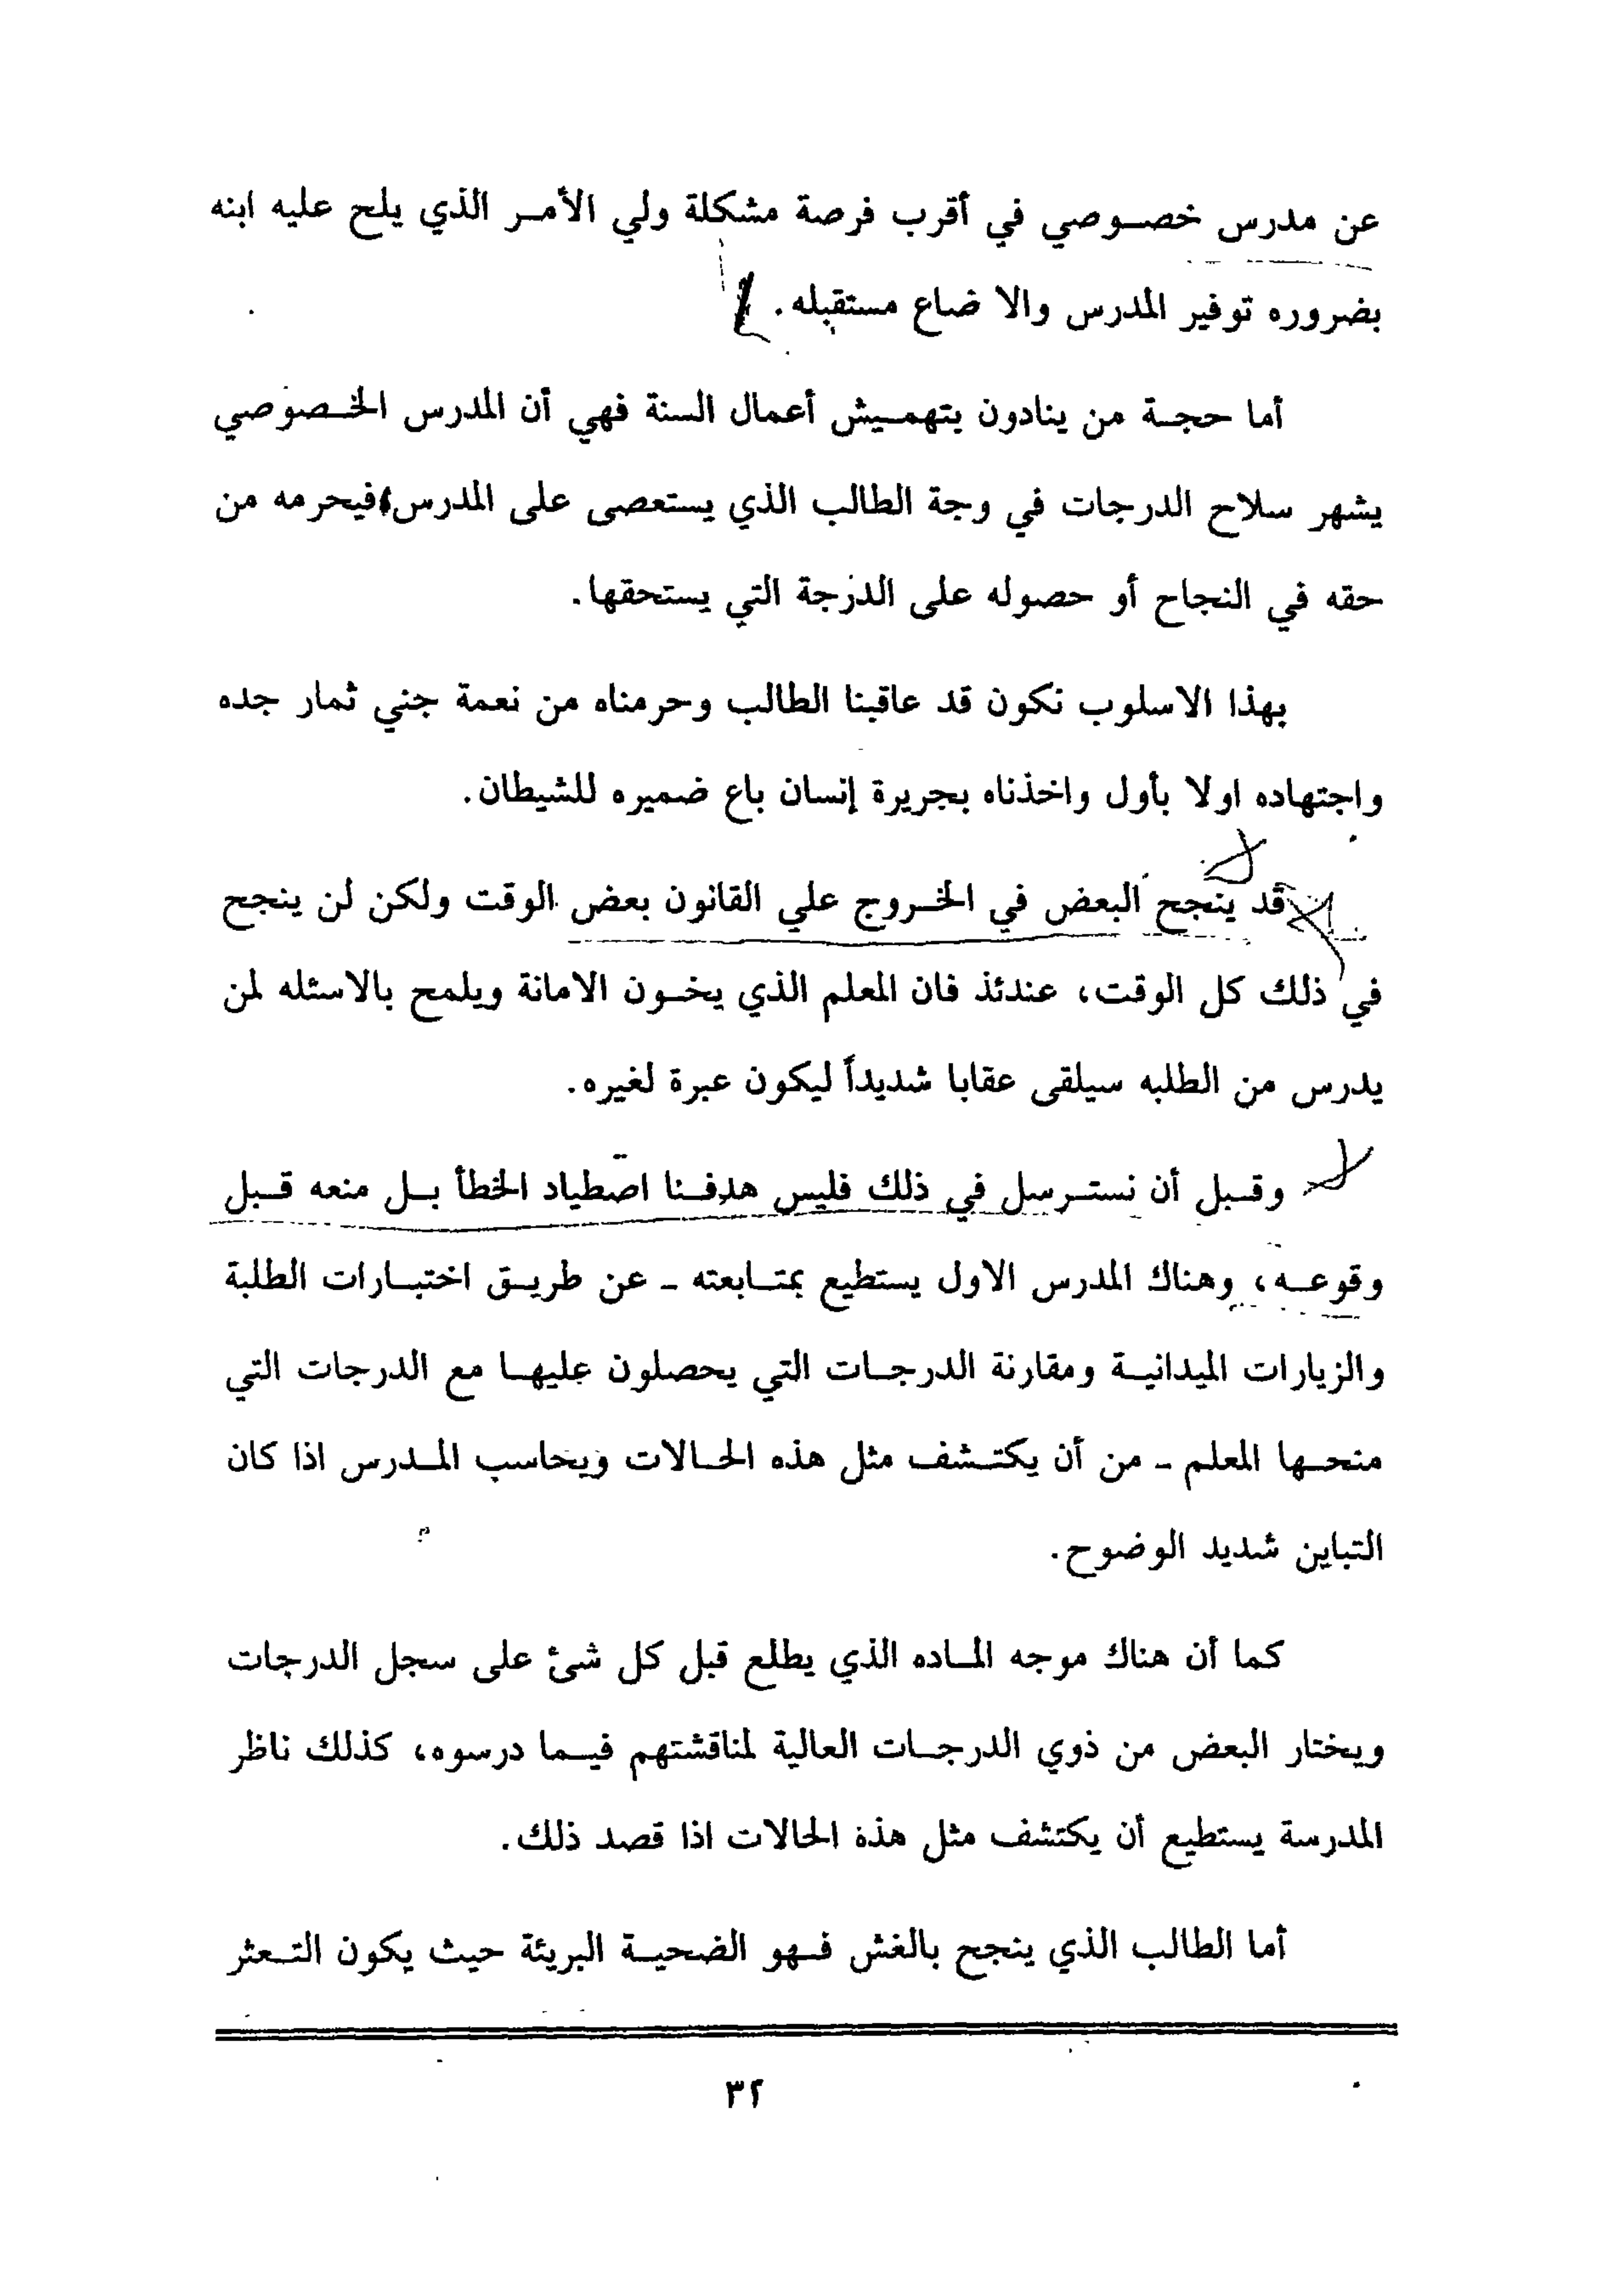 عن مدرس خصوصي في أقرب فرصة مشكلة ولي الأمر الذي يلح عليه ابنه
بضروره توفير المدرس والا ضاع مستقبله.
أما حجة من ينادون بتهميش أعمال السنة فهي أن المدرس الخصوصي
يشهر سلاح الدرجات في وجة الطالب الذي يستعصى على المدرس فيحرمه من
حقه في النجاح أو حصوله على الدرجة التي يستحقها.
بهذا الاسلوب نكون قد عاقبنا الطالب وحرمناه من نعمة جني ثمار جده
واجتهاده اولا بأول واخذناه بجريرة إنسان باع ضميره للشيطان.
قد ينجح البعض في الخروج علي القانون بعض الوقت ولكن لن ينجح
في ذلك كل الوقت، عندئذ فان المعلم الذي يخون الامانة ويلمح بالاسئله لمن
يدرس من الطلبه سيلقى عقابا شديداً ليكون عبرة لغيره.
وقبل أن نسترسل في ذلك فليس هدفنا اصطياد الخطأ بل منعه قبل
وقوعه، وهناك المدرس الاول يستطيع بمتابعته - عن طريق اختبارات الطلبة
والزيارات الميدانية ومقارنة الدرجات التي يحصلون عليها مع الدرجات التي
منحها المعلم - من أن يكتشف مثل هذه الحالات ويحاسب المدرس اذا كان
التباين شديد الوضوح.
كما أن هناك موجه الماده الذي يطلع قبل كل شئ على سجل الدرجات
ويختار البعض من ذوي الدرجات العالية لمناقشتهم فيما درسوه، كذلك ناظر
المدرسة يستطيع أن يكتشف مثل هذه الحالات اذا قصد ذلك.
أما الطالب الذي ينجح بالغش فهو الضحية البريئة حيث يكون التعثر
٣٢